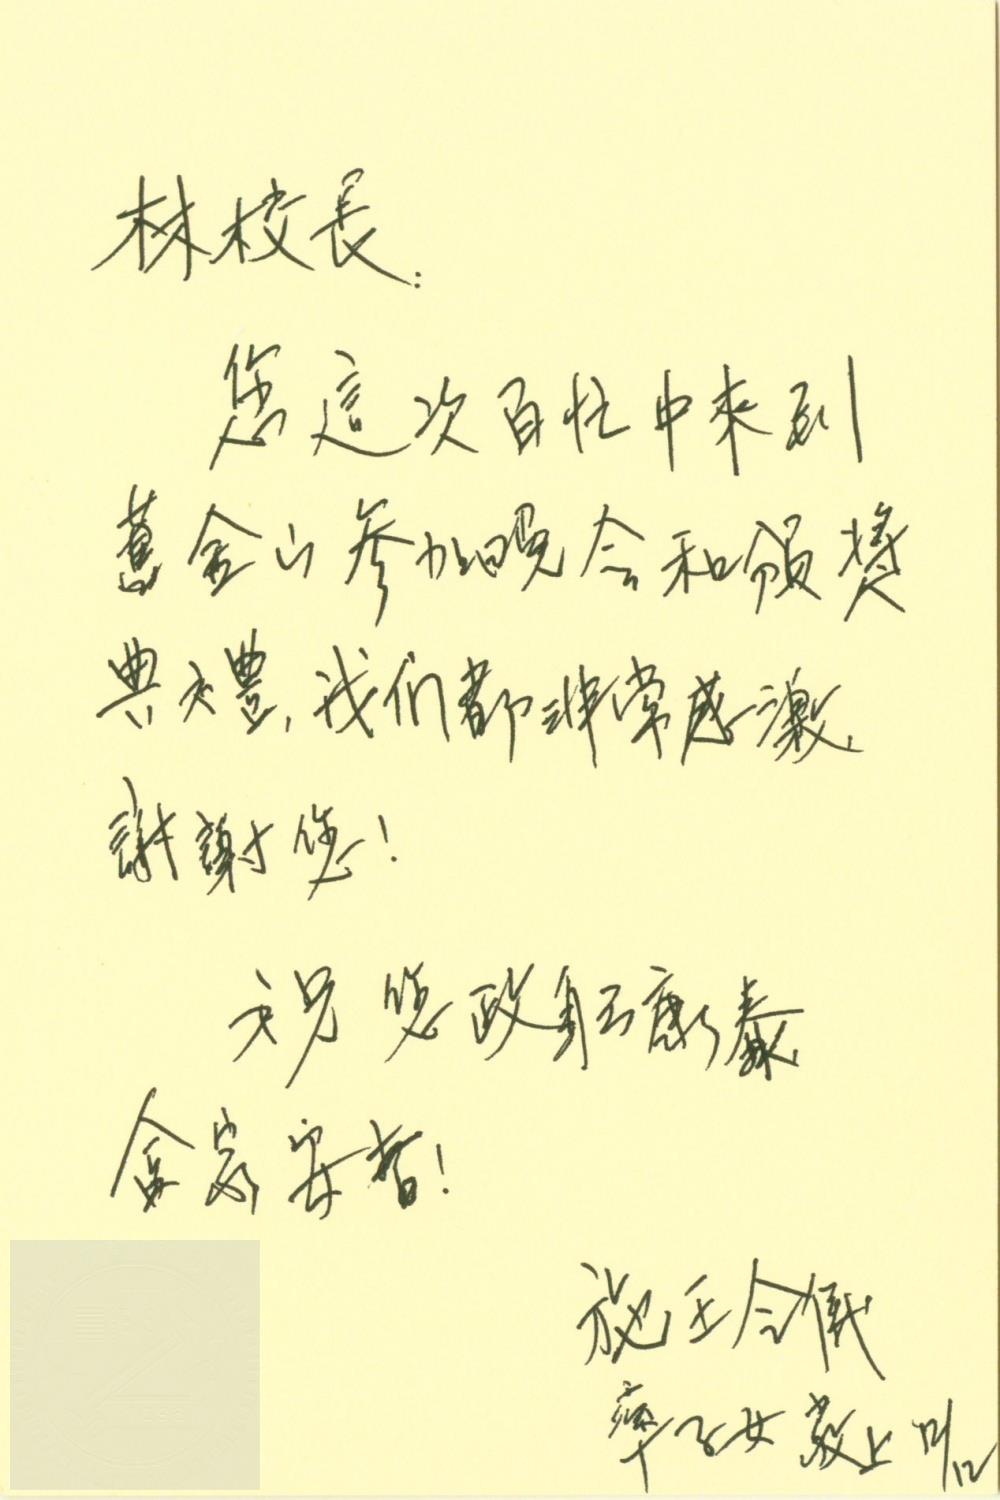 林校長:
您這次百忙中來到
舊金山參加晚会和頒獎
典禮,我们都非常感激,
謝謝您!
祝您政躬康泰
金家安吉!
施王令儀
率子女敬上 11/12